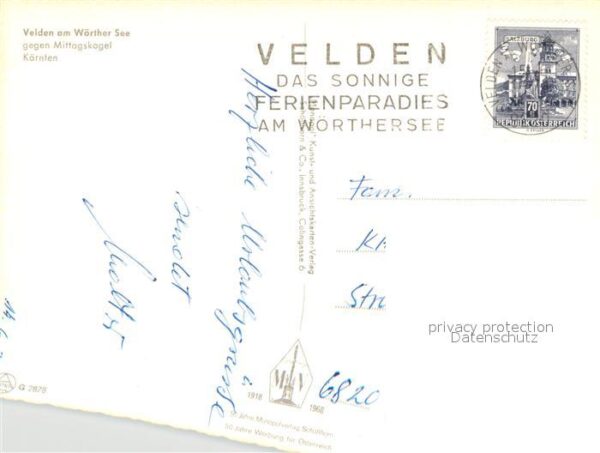 Velden am Wörther See
gegen Mittagskogel
Kärnten
VELDEN
DAS SONNIGE
FERIENPARADIES
AM WÖRTHERSEE
SALZBURG
70
REPUBLIK ÖSTERREICH
VELDEN
Herzliche Urlaubsgrüsse
sendet
Kunst- und Ansichtskarten-Verlag
& Co., Innsbruck, Colingasse 6
Fam.
Kl
Str
6820
privacy protection
Datenschutz
1918
1968
50 Jahre Monopolverlag
50 Jahre Werbung für Österreich
G 2878